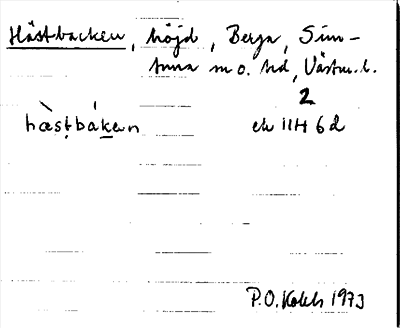 Hästbacken, höjd, Berga, Sim-
tuna sn o. hd, Västm.l.
2
hæ̀stbáken
ek 11H 6d
P.O. 1973